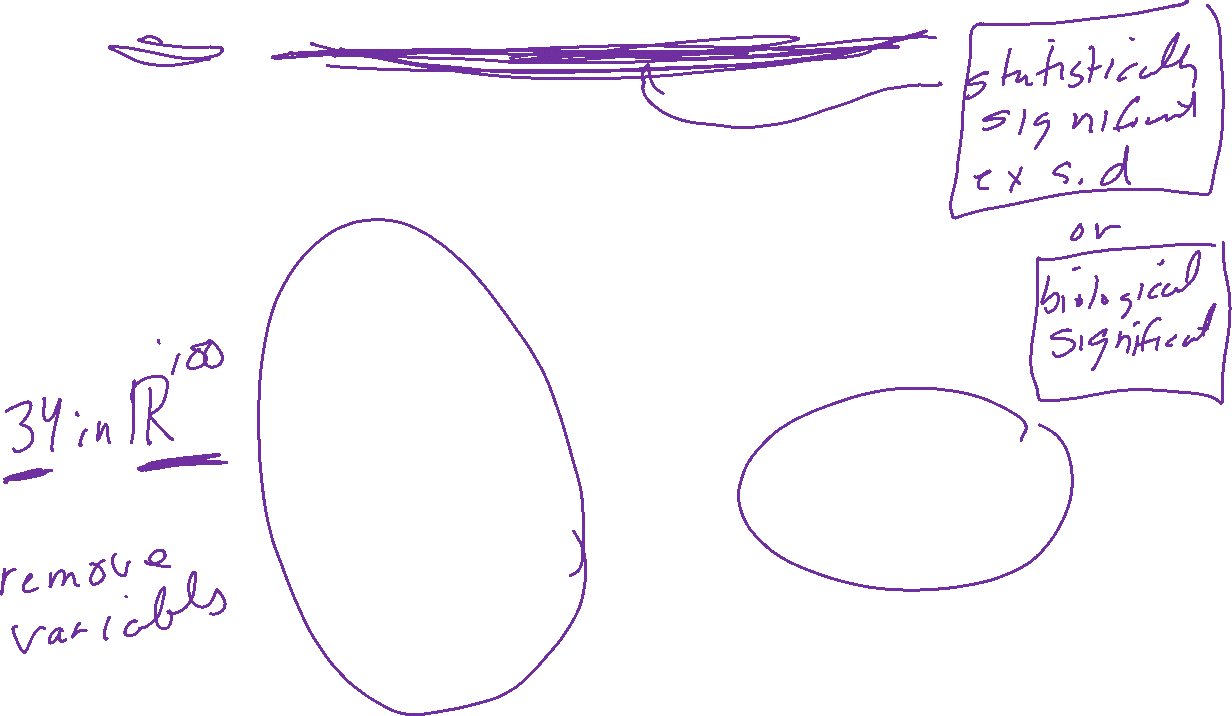 statistically
significant
ex s.d
or
biological
significant
34 in ℝ¹⁰⁰
remove
variables